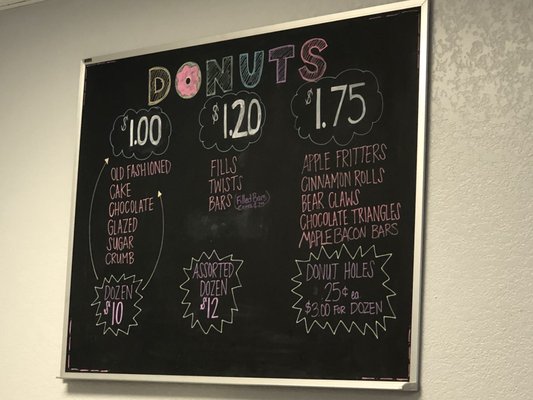 DONUTS
$1.00
OLD FASHIONED
CAKE
CHOCOLATE
GLAZED
SUGAR
CRUMB
DOZEN
$10
$1.20
FILLS
TWISTS
BARS (Filled Bars
ASSORTED
DOZEN
$12
$1.75
APPLE FRITTERS
CINNAMON ROLLS
BEAR CLAWS
CHOCOLATE TRIANGLES
MAPLE BACON BARS
DONUT HOLES
25¢ ea
$3.00 FOR DOZEN